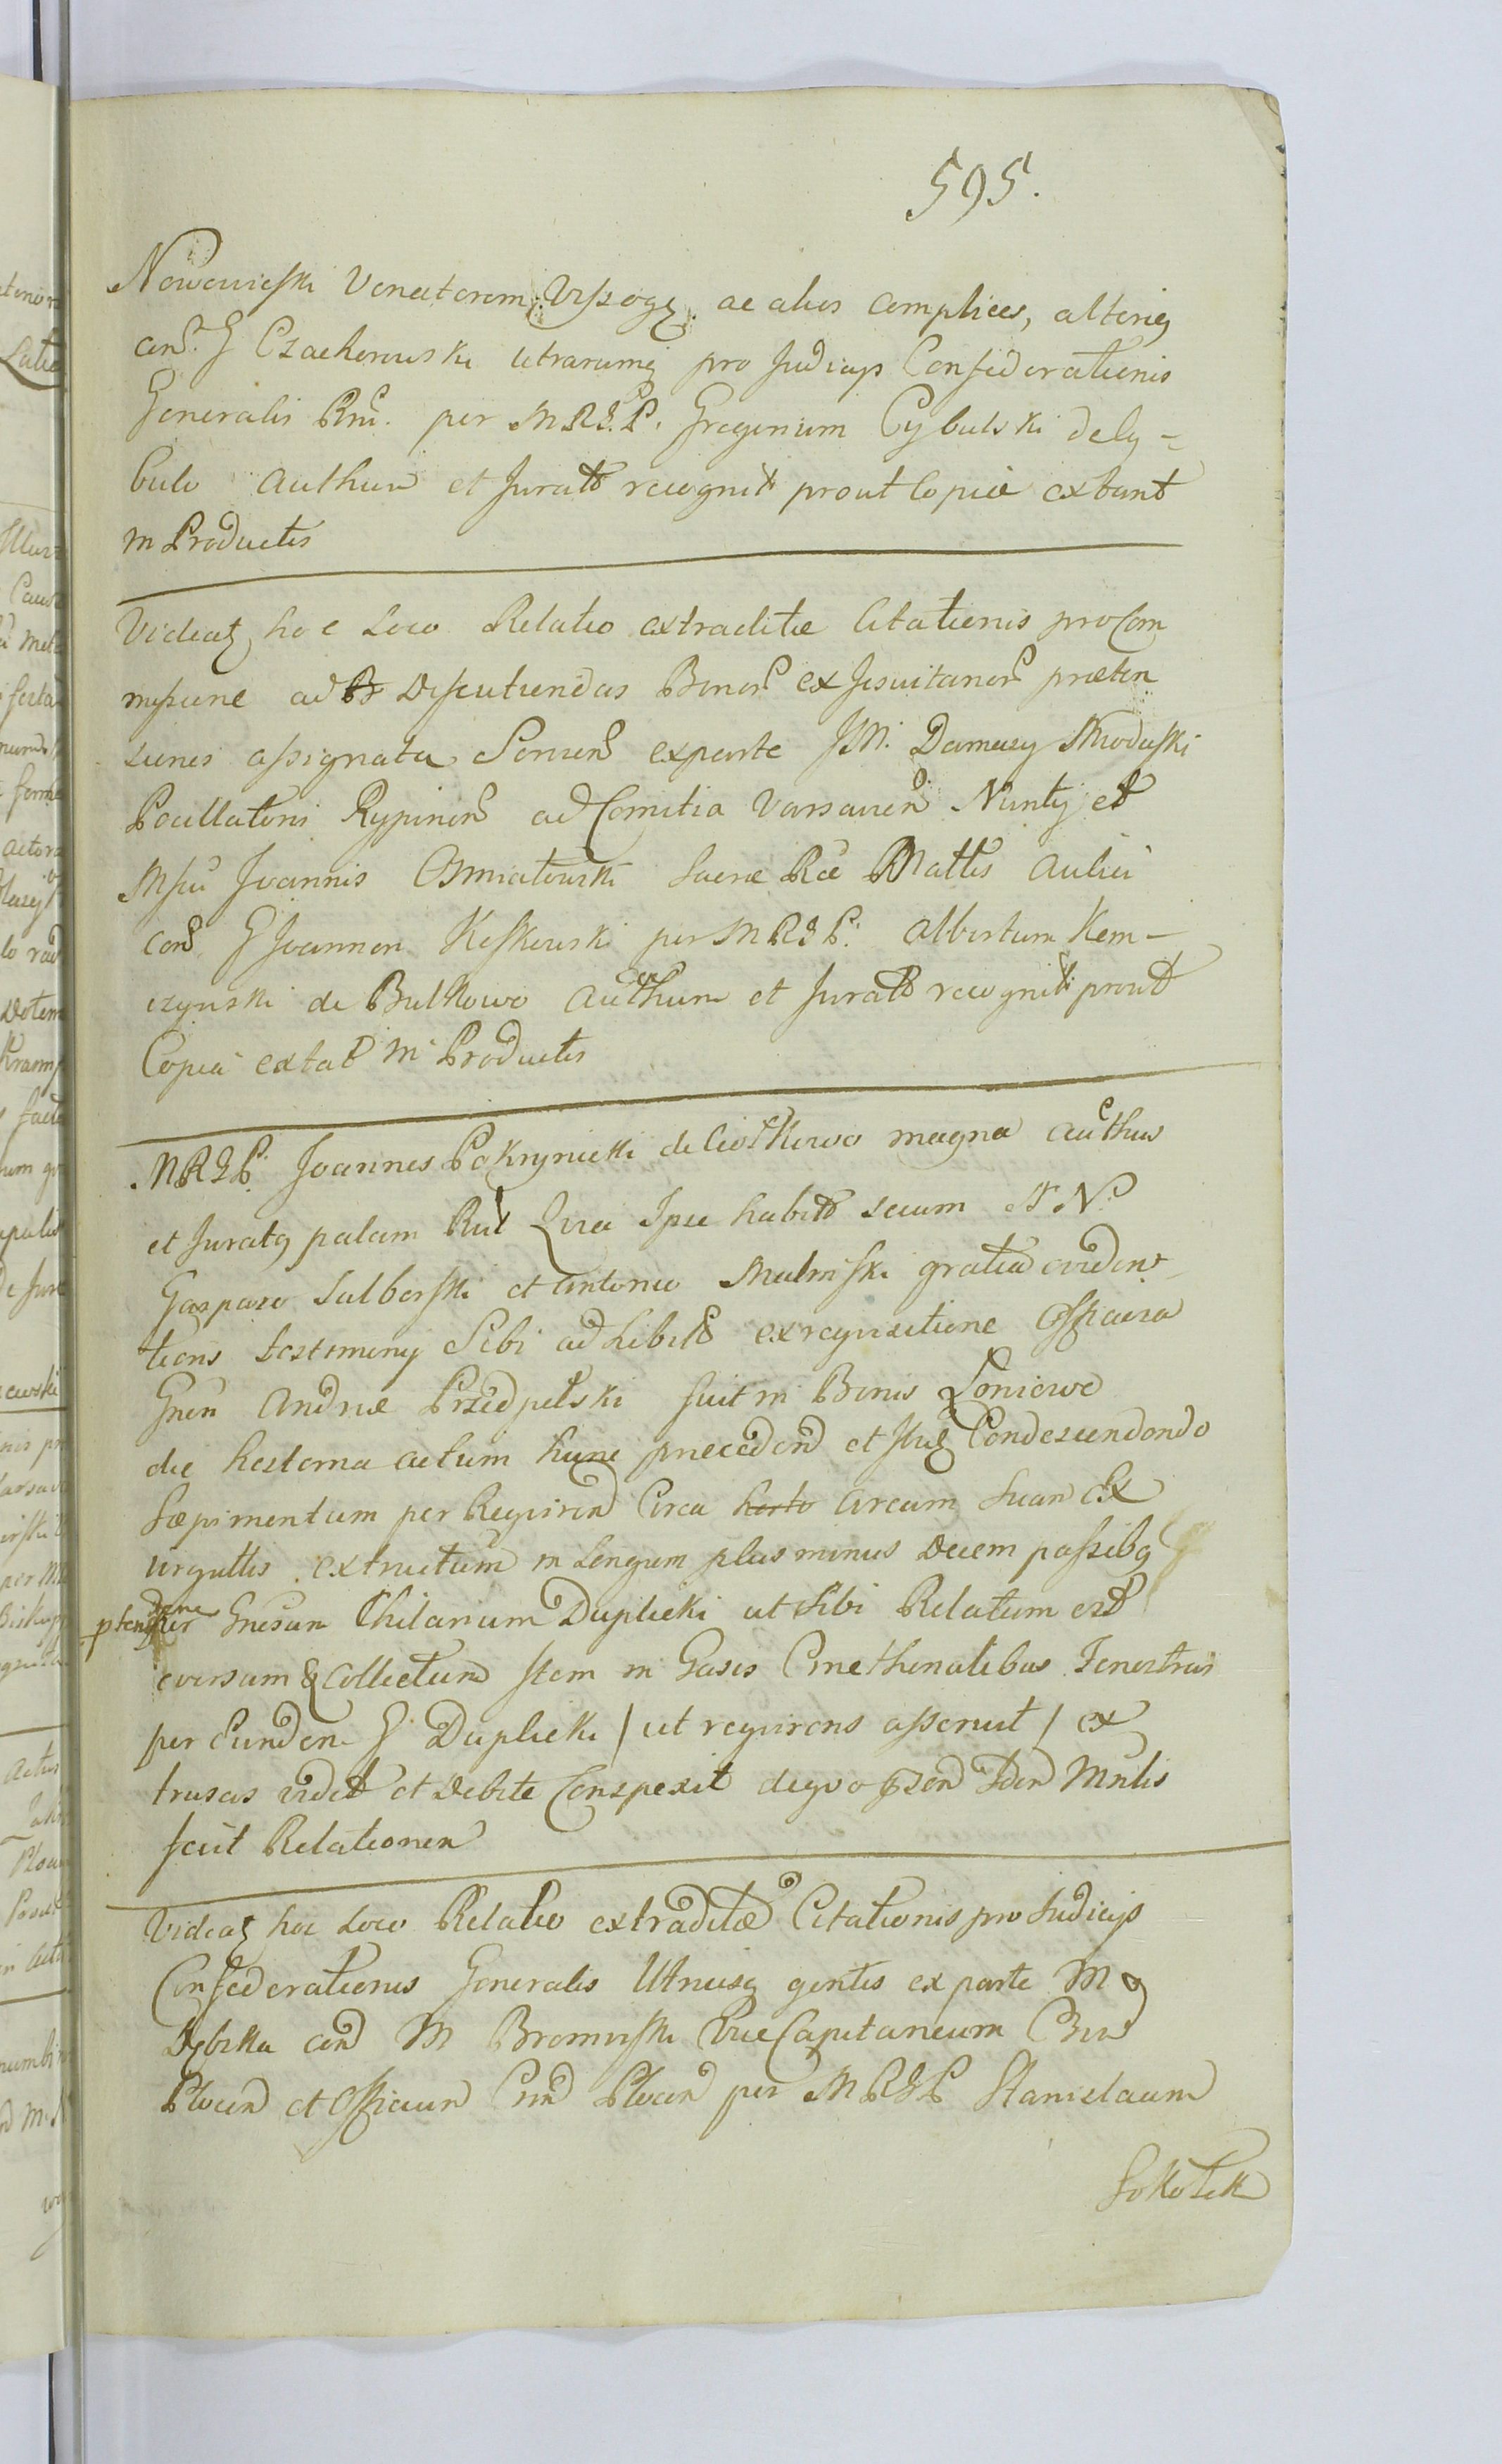 595.
Nowowieski Venatorem Wyszogę. ac alios complices, alteriq
conē. G Czachorowski utrarumq pro Judicijs Confœderationis
Generalis Rni. per MRGP. Gregorium Cybulski de Cy-
bulo Authum et Juratū recognit. prout Copiæ extant
in Productis
Videatꝫ hoc Loco Relatio extraditæ Citationis pro Com
missione ad Discutiendas Bonor̄ ex Jesuitanor̄ præten
siones assignata Servien̄ ex parte JM. Damazy Mioduski
Pocillatoris Rypinen̄ ad Comitia Varsavien̄ Nuntij et
Mfici Joannis Osmiałowski Sacræ Ræ Mattis Aulici
con̄. G Joannem Kęskowski per MRGP. Albertum Kem-
czynski de Bulkowo Aucthum et Juratū recognit. prout
Copia extat in Productis
MRGP. Joannes Pokrzynicki de Ciołkowo magna Aucthus
et Juratꝫ palam Rūt Quia Ipse habitis secum N N.
Gasparo Sulborski et Antonio Malniski gratia eviden-
tioris testimonij Sibi adhibitis ex requisitione Officiosa
Gnen̄ Andreæ Przedpełski fuit in Bonis Łoniewo
die hesterna actum hunc præceden̄ et Ibiꝫ Condescendendo
Sæpimentum per Requiren̄ Circa horto Circum Suam Ex
virgultis extructum in Longum plus minus Decem passibꝫ
pten per Gnesum Chilarium Duplicki ut Sibi Relatum est
eversum & Collectum Item in Casis Cmethonalibus Fenestras
per Eundem G. Duplicki / ut requirens asseruit / ex
trusas vidit et Debite Conspexit de quo Idem Mnlis
fecit Relationem
Videatꝫ hoc Loco Relatio extraditæ Citationis pro Judicijs
Confœderationis Generalis Utriusꝫ gentis ex parte M
Dębska con̄ M Bromirski Vice Capitaneum
Plocen̄ et Officium Plocen̄ per MRGP Stanislaum
Sokolik